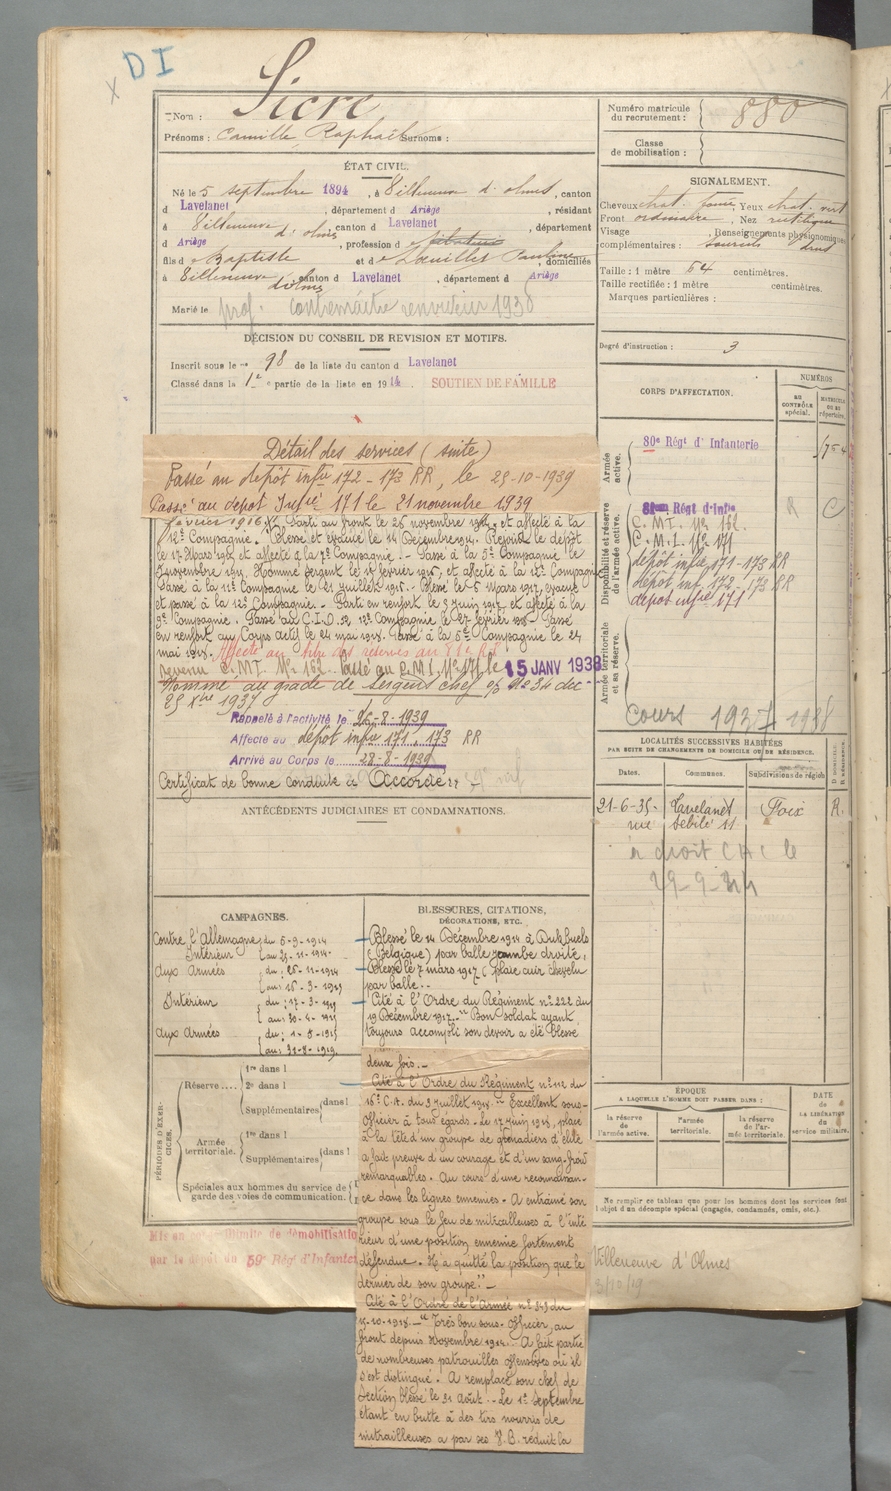 DI
Nom : Sicre
Prénoms : Camille Raphaël Surnoms :
ÉTAT CIVIL.
Né le 5 septembre 1894, à Villeneuve d'olmes, canton
d Lavelanet, département d Ariège, résidant
à Villeneuve d'olmes canton d Lavelanet, département
d Ariège, profession d
fils d Baptiste et d Pauline domiciliés
à Villeneuve d'olmes, canton d Lavelanet, département d Ariège
Marié le
prof. contremaître 1938
DÉCISION DU CONSEIL DE REVISION ET MOTIFS.
Inscrit sous le n° 98 de la liste du canton d Lavelanet
Classé dans la 1e partie de la liste en 1914. SOUTIEN DE FAMILLE
Détail des services (suite)
Passé au depôt infie 172-173 RR, le 25-10-1939
Passé au depot Infie 171 le 21 novembre 1939
Parti au front le 26 novembre 1914 et affecté à la
12e Compagnie. Blessé et évacué le 14 Décembre 1914. Rejoint le dépôt
le 17 Mars 1915 et affecté à la 7e Compagnie. - Passé à la 5e Compagnie le
Nommé sergent le février et affecté à la 12e Compagnie
Passé à la 11e Compagnie le 21 juillet - Blessé le Mars 1917, évacué
et passé à la 12e Compagnie. - Parti en renfort le 3 juin 1917 et affecté à la
9e Compagnie. Passé au C.I.D. 12e Compagnie le 27 février 1918. Passé
en renfort au Corps actif le 24 mai 1918. Passé à la 5e Compagnie le 24
mai 1918. Affecté au titre des réserves au RI
devenu C.M.I. No 162. Passé au C.M.I. No 171 le 15 JANV 1938
Nommé au grade de Sergent chef
25 Xbre 1937
Rappelé à l'activité le 26-8-1939
Affecté au dépôt infie 171, 173 RR
Arrivé au Corps le 28-8-1939
Certificat de bonne conduite "Accordé"
ANTÉCÉDENTS JUDICIAIRES ET CONDAMNATIONS.
CAMPAGNES.
Contre l'Allemagne, du 5-9-1914
Intérieur au 25-11-1914
aux Armées du : 26-11-1914
au : 16-3-
Intérieur du : 17-3-
au : 30-4-
aux Armées du : 1-5-
au : 31-8-1919
Réserve.... 1re dans l
2e dans l
Supplémentaires dans l
Armée territoriale. 1re dans l
Supplémentaires dans l
PÉRIODES D'EXERCICES.
Spéciales aux hommes du service de
garde des voies de communication.
BLESSURES, CITATIONS,
DÉCORATIONS, ETC.
Blessé le 14 Décembre 1914 à
(Belgique) par balle jambe droite,
Blessé le 7 mars 1917 (plaie cuir chevelu
par balle..
Cité à l'Ordre du Régiment n° 222 du
19 Décembre 1917. "Bon soldat ayant
toujours accompli son devoir a été Blessé
deux fois.-
Cité à l'Ordre du Régiment n° 112 du
16e C.A. du 3 juillet 1918. "Excellent sous-
officier à tous égards. Le 17 juin 1918, placé
à la tête d'un groupe de grenadiers d'élite
a fait preuve d'un courage et d'un sang-froid
remarquables. Au cours d'une reconnaissan-
ce dans les lignes ennemies. A entraîné son
groupe sous le feu de mitrailleuses à l'inté
rieur d'une position ennemie fortement
défendue. N'a quitté la position que le
dernier de son groupe." -
Cité à l'Ordre de l'Armée n° du
-10-1918. - "Très bon sous-officier, au
front depuis Novembre 1914. A fait partie
de nombreuses patrouilles offensives où il
s'est distingué. A remplacé son chef de
section blessé le 31 Août. - Le 1er Septembre
étant en butte à des tirs nourris de
mitrailleuses a par ses V.B. réduit la
Mis en congé illimité de démobilisation
par le dépôt du 59e Régt d'Infanterie
Numéro matricule
du recrutement : 880
Classe
de mobilisation :
SIGNALEMENT.
Cheveux chat. Yeux chat. vert
Front ordinaire, Nez rectiligne
Visage , Renseignements physionomiques
complémentaires : sourcils
Taille : 1 mètre 64 centimètres.
Taille rectifiée : 1 mètre centimètres.
Marques particulières :
Degré d'instruction : 3
CORPS D'AFFECTATION.
NUMÉROS
AU CONTRÔLE SPÉCIAL.
MATRICULE OU AU RÉPERTOIRE.
Armée active.
80e Régt d'Infanterie
Disponibilité et réserve de l'armée active.
Régt d'Infie R C
C.M.I. No 162.
C.M.I. No 171
dépôt infie 171-173 RR
dépôt inf. 172-173 RR
depôt infie 171
Armée territoriale et sa réserve.
Cours 1937 1938
LOCALITÉS SUCCESSIVES HABITÉES
PAR SUITE DE CHANGEMENTS DE DOMICILE OU DE RÉSIDENCE.
Dates. Communes. Subdivisions de région D DOMICILE. R RÉSIDENCE.
21-6-35- Lavelanet Foix R.
rue 11
a droit C le
29-9-
ÉPOQUE
A LAQUELLE L'HOMME DOIT PASSER DANS :
la réserve de l'armée active. l'armée territoriale. la réserve de l'armée territoriale.
DATE de LA LIBÉRATION du service militaire.
Ne remplir ce tableau que pour les hommes dont les services font
l'objet d'un décompte spécial (engagés, condamnés, omis, etc.).
Villeneuve d'Olmes